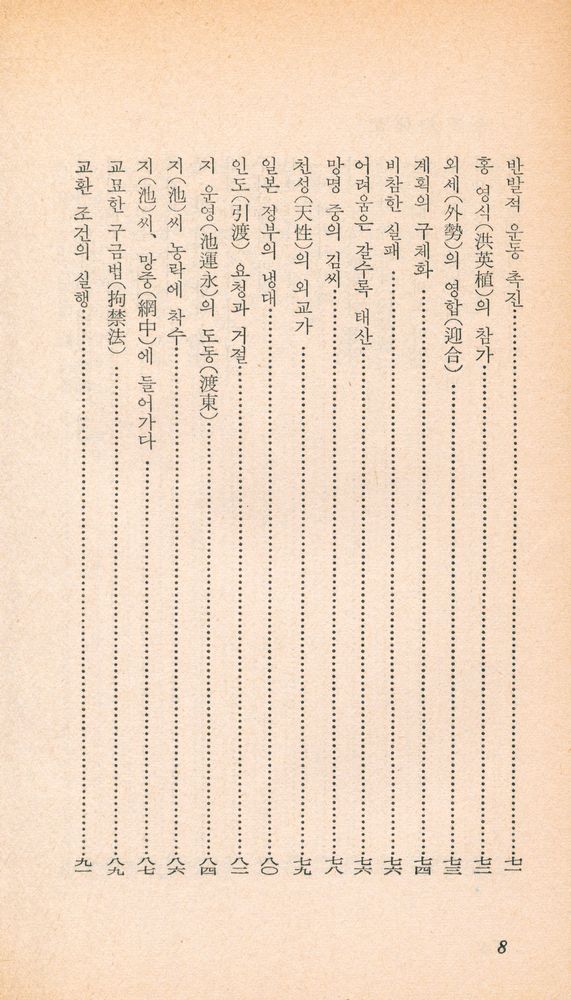 반발적 운동 촉진……七一
홍 영식(洪英植)의 참가……七二
외세(外勢)의 영합(迎合)……七三
계획의 구체화……七四
비참한 실패……七六
어려움은 갈수록 태산……七六
망명 중의 김씨……七八
천성(天性)의 외교가……七九
일본 정부의 냉대……八〇
인도(引渡) 요청과 거절……八二
지 운영(池運永)의 도동(渡東)……八四
지(池)씨 농락에 착수……八六
지(池)씨、망중(網中)에 들어가다……八七
교묘한 구금법(拘禁法)……八九
교환 조건의 실행……九一
8